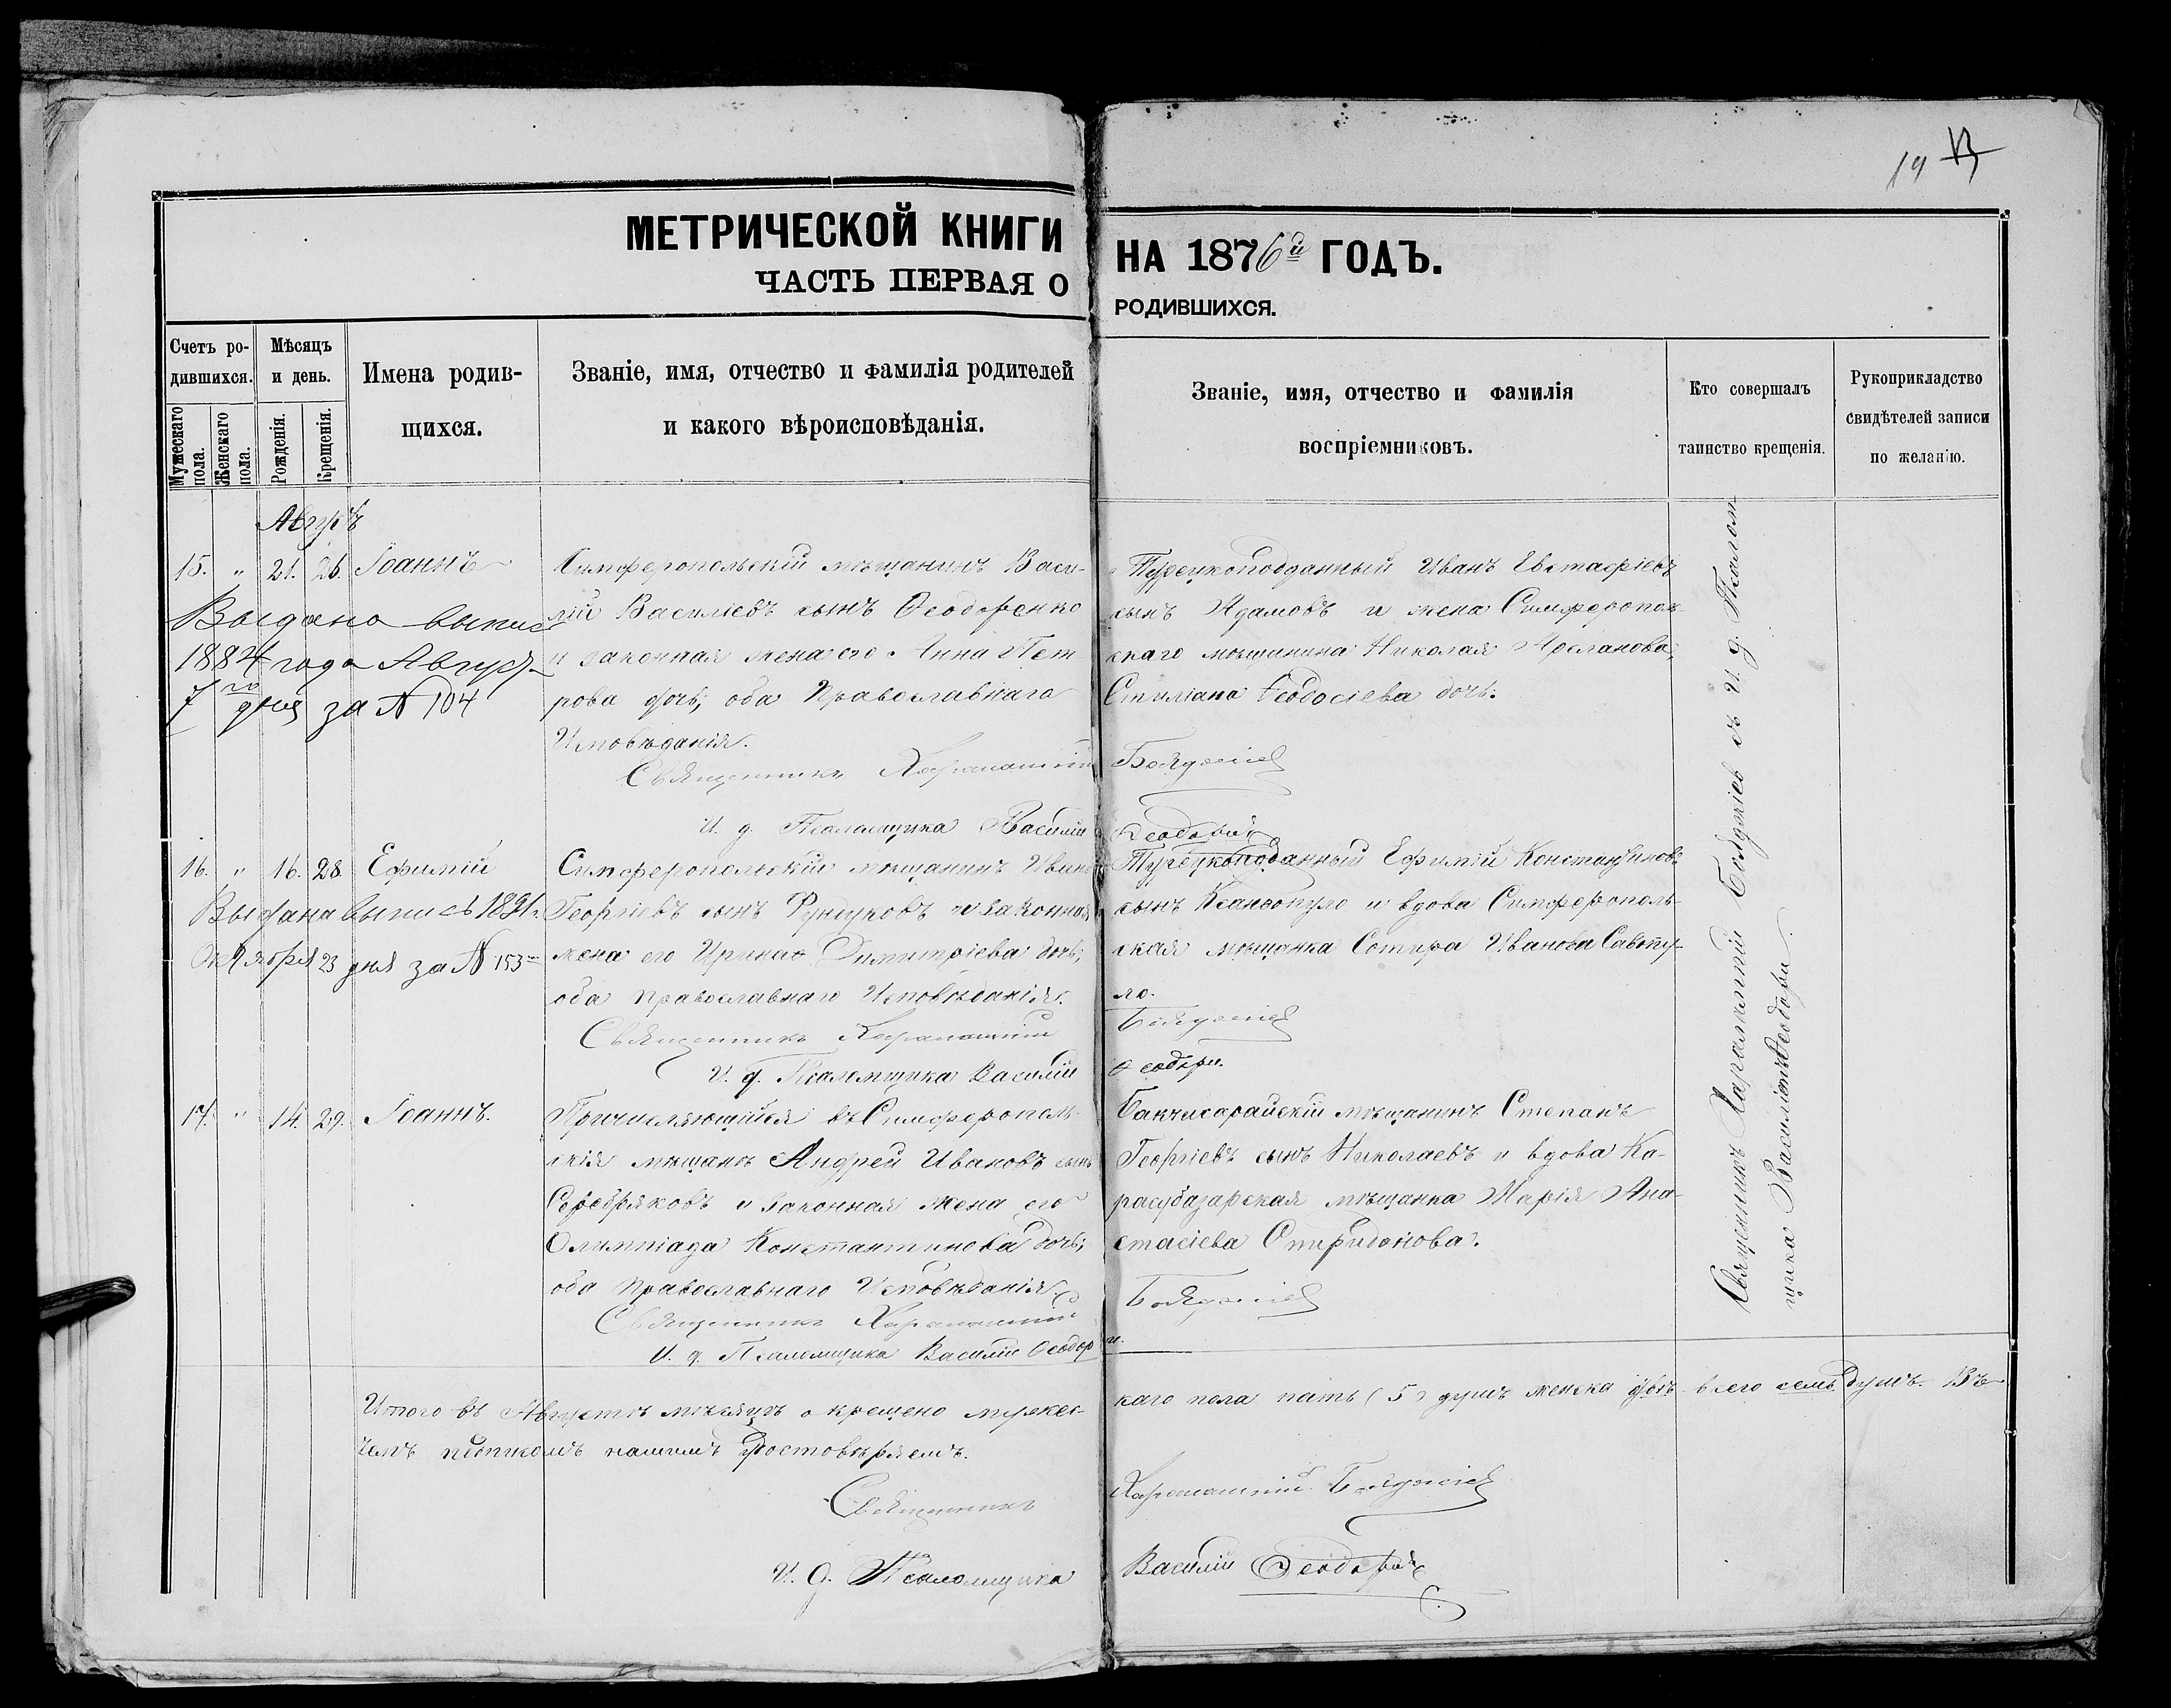 19 13
МЕТРИЧЕСКОЙ КНИГИ НА 1876й ГОДЪ.
ЧАСТЬ ПЕРВАЯ О РОДИВШИХСЯ.
Счетъ родившихся.
Мужескаго пола.
Женскаго пола.
Мѣсяцъ и день.
Рожденія.
Крещенія.
Имена родив-
шихся.
Званіе, имя, отчество и фамилія родителей
и какого вѣроисповѣданія.
Званіе, имя, отчество и фамилія
воспріемниковъ.
Кто совершалъ
таинство крещенія.
Рукоприкладство
свидѣтелей записи
по желанію.
Августъ
15. " 21. 26. Іоаннъ
Симферопольскій мѣщанинъ Васи-
лій Васильевъ сынъ Ѳеодоренко
и законная жена его Анна Пет-
рова дочь, оба Православнаго
Исповѣданія.
Священникъ Харалампій Бояджіев
И. д. Псаломщика Василій Ѳеодори
Турецкоподданный Иванъ Евстафіевъ
сынъ Адамовъ и жена Симферополь-
скаго мѣщанина Николая Арсланова,
Стиліана Ѳеодосіева дочь.
Выдана выпись
1884 года Август
7го дня за № 104
16. " 16. 28. Ефимій
Симферопольскій мѣщанинъ Иванъ
Георгіевъ сынъ Фундуковъ и законная
жена его Ирина Димитріева дочь,
оба православнаго Исповѣданія.
Священникъ Харалампій Бояджіев
И. д. Псаломщика Василій Ѳеодори.
Турецкоподданный Ефимій Константиновъ
сынъ Ксанфопуло и вдова Симферополь-
ская мѣщанка Сотира Иванова Савопу-
ло.
Выдана выпись 1891.
Октября 23 дня за № 153
17. " 14. 29. Іоаннъ.
Причисляющійся въ Симферополь-
скія мѣщане Андрей Ивановъ сынъ
Серебряковъ и законная жена его
Олимпіада Константинова дочь;
оба православнаго Исповѣданія.
Священникъ Харалампій Бояджіев
И. д. Псаломщика Василій Ѳеодори.
Бакчисарайскій мѣщанинъ Степанъ
Георгіевъ сынъ Николаевъ и вдова Ка-
расубазарская мѣщанка Марія Ана-
стасіева Спиридонова.
Священникъ Харалампій Бояджіев съ И. д. Псалом-
щика Василіемъ Ѳеодори.
Итого въ Августѣ мѣсяцѣ окрещено мужес-
каго пола пять (5) душъ женска двѣ всего семь душъ. Въ
чемъ подписомъ нашимъ удостовѣряемъ.
Священникъ Харалампій Бояджіев
И. д. Псаломщика Василій Ѳеодори